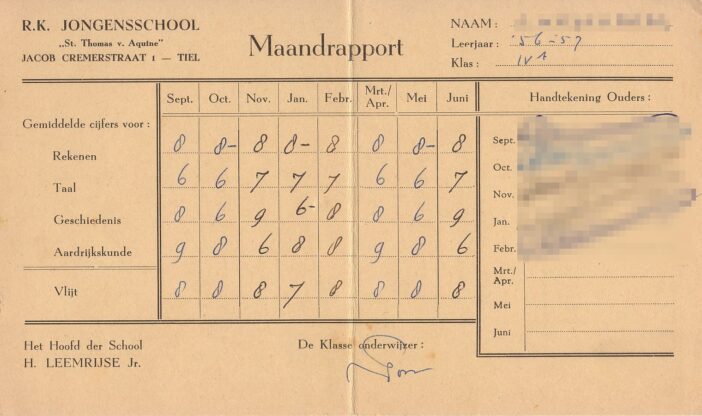 R.K. JONGENSSCHOOL
„St. Thomas v. Aquine"
JACOB CREMERSTRAAT 1 — TIEL
Maandrapport
NAAM :
Leerjaar : '56-'57
Klas : IV A
Sept. Oct. Nov. Jan. Febr. Mrt./Apr. Mei Juni
Handtekening Ouders :
Gemiddelde cijfers voor :
Rekenen 8 8- 8 8- 8 8 8- 8
Taal 6 6 7 7 7 6 6 7
Geschiedenis 8 6 9 6- 8 8 6 9
Aardrijkskunde 9 8 6 8 8 9 8 6
Vlijt 8 8 8 7 8 8 8 8
Sept.
Oct.
Nov.
Jan.
Febr.
Mrt./
Apr.
Mei
Juni
Het Hoofd der School
H. LEEMRIJSE Jr.
De Klasse onderwijzer :